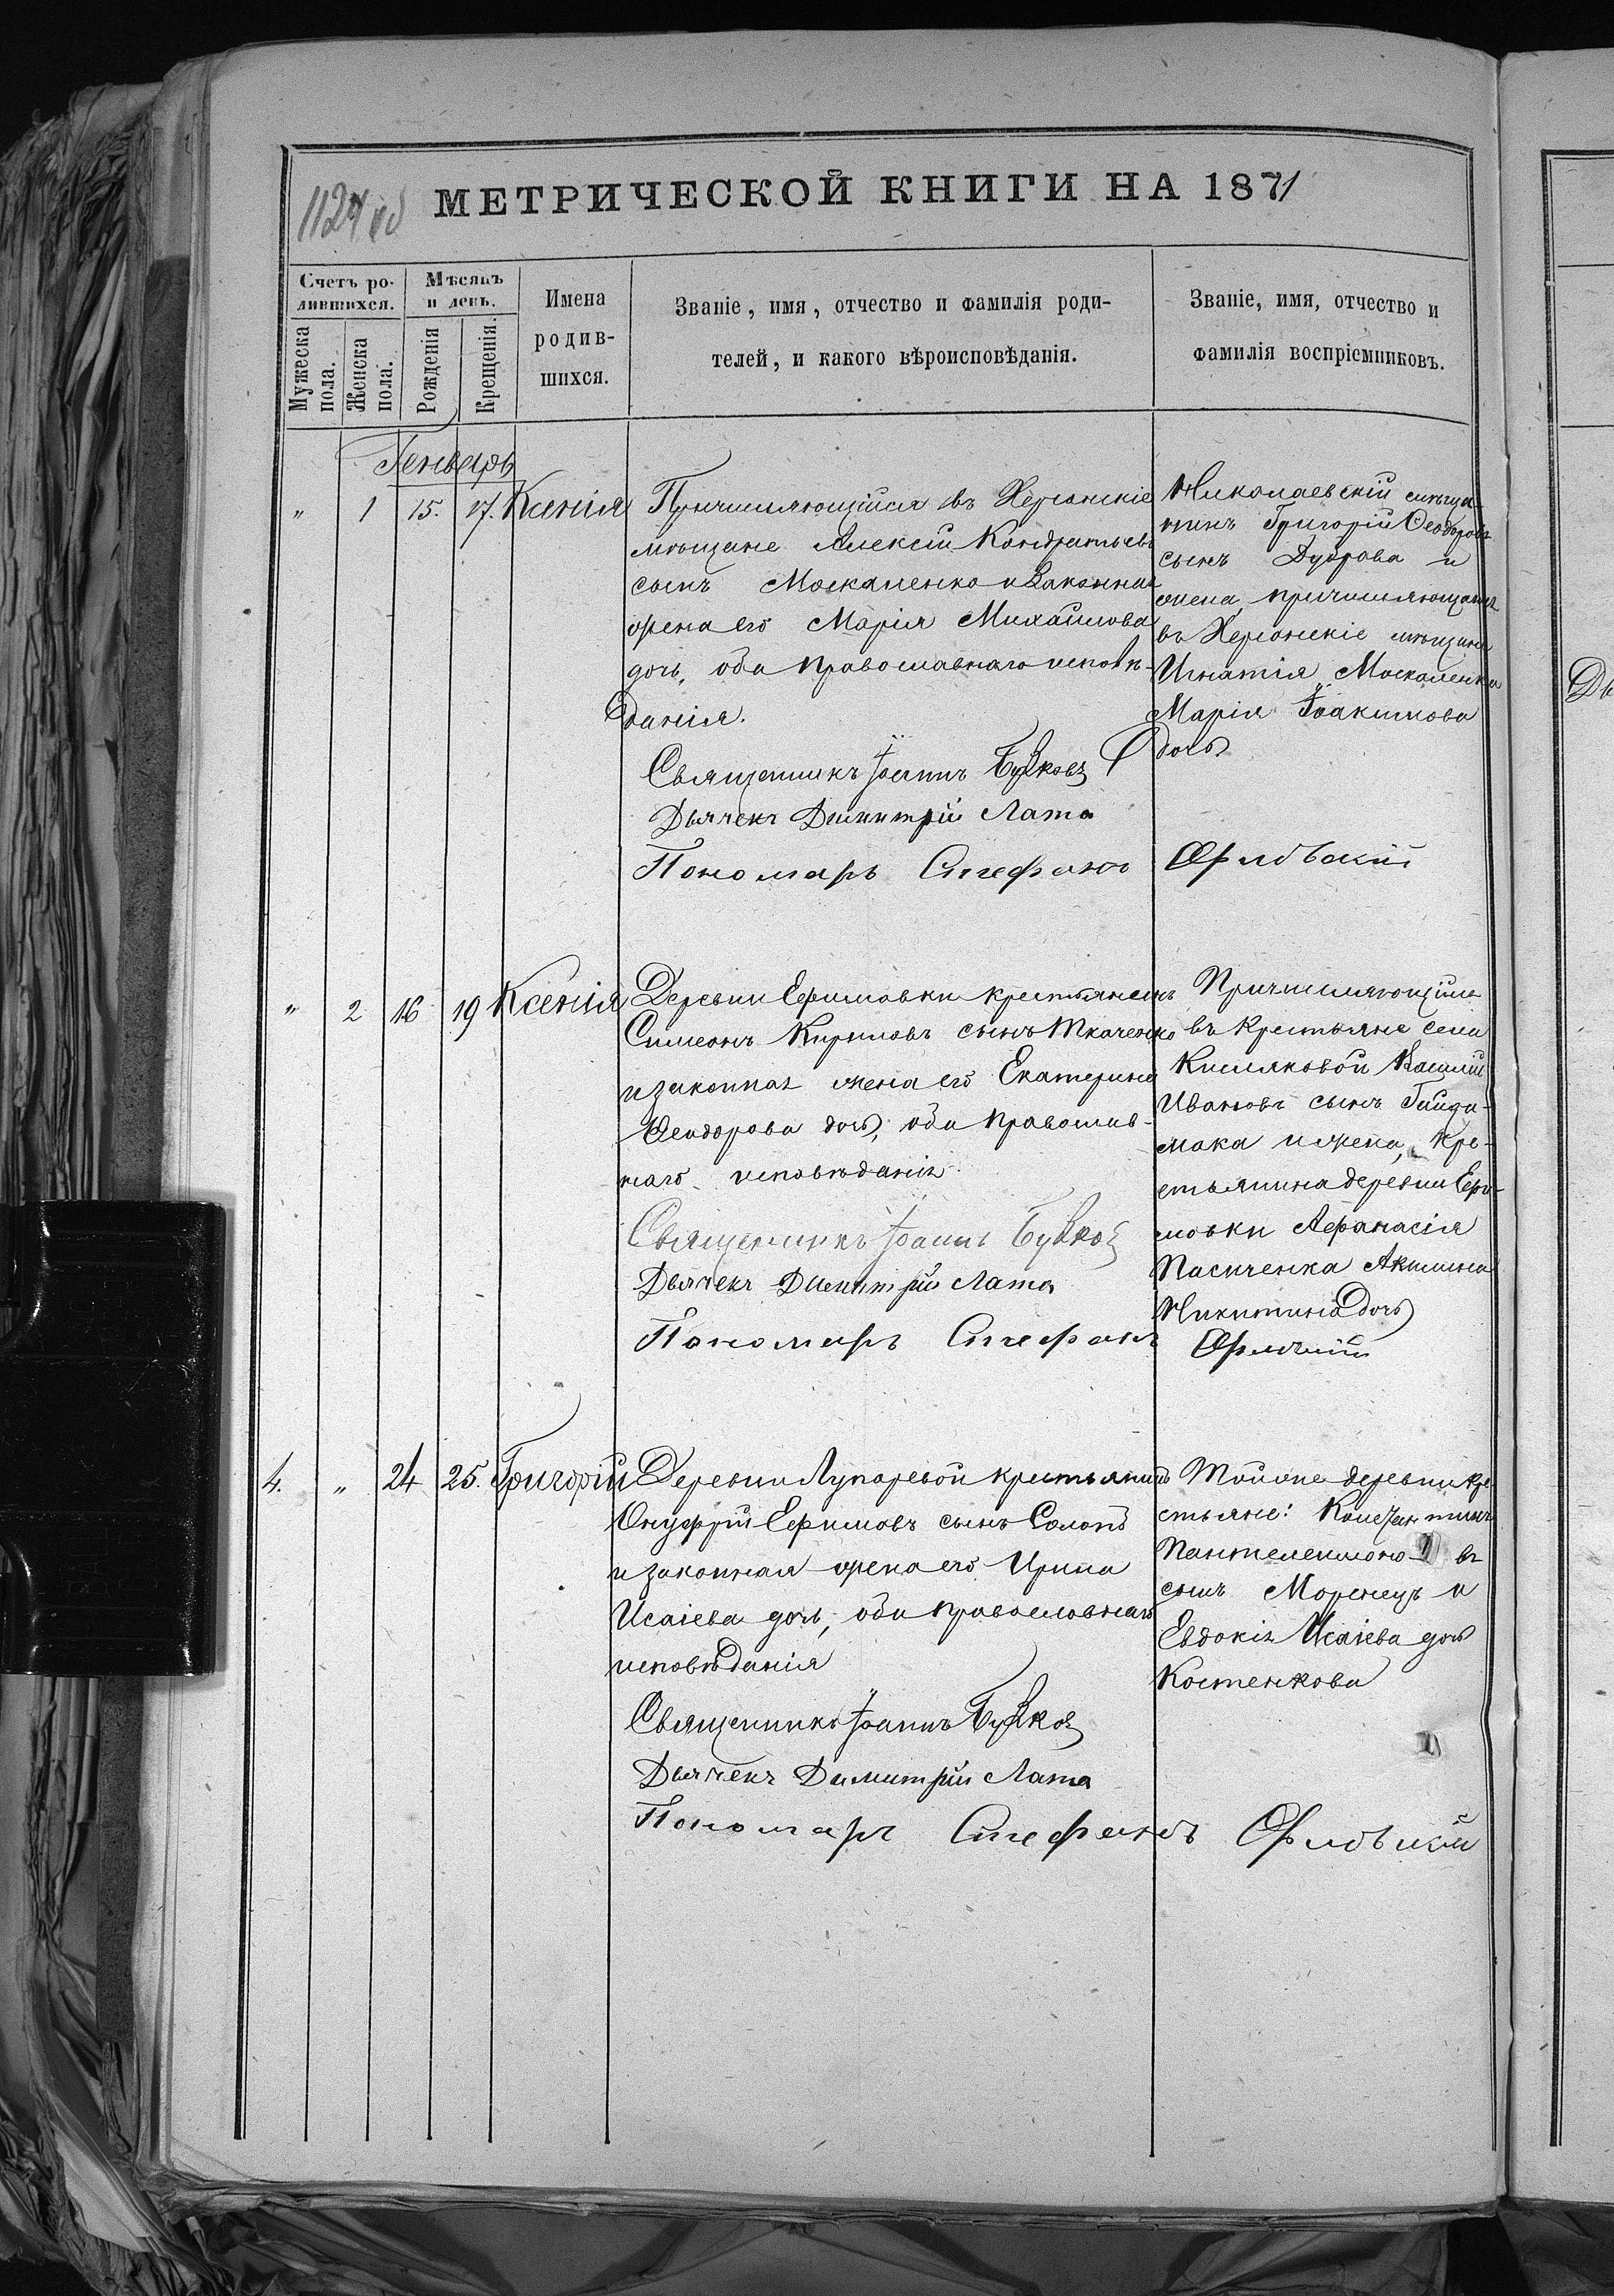 1124 об
МЕТРИЧЕСКОЙ КНИГИ НА 1871
Счетъ ро-
дившихся.
Мѣсяцъ
и день.
Мужеска
пола.
Женска
пола.
Рожденія
Крещенія.
Имена
родив-
шихся.
Званіе, имя, отчество и фамилія роди-
телей, и какого вѣроисповѣданія.
Званіе, имя, отчество и
фамилія воспріемниковъ.
Генварь
" 1 15. 17. Ксенія
Причисляющійся въ Херсонскіе
мѣщане Алексій Кондратьевъ
сынъ Москаленко и законная
жена его Марія Михайлова
дочь, оба православнаго исповѣ-
данія.
Священникъ Іоаннъ
Дьячекъ Димитрій Лата
Пономарь Стефанъ
Николаевскій мѣща-
нинъ Григорій Феодоровъ
сынъ Дуброва и
жена, причисляющагося
въ Херсонскіе мѣщане
Игнатія Москаленка
Марія Іоакимова
дочь
" 2 16 19 Ксенія
Деревни Ефимовки крестьянинъ
Симеонъ Кириловъ сынъ Ткаченко
и законная жена его Екатерина
Феодорова дочь, оба православ-
наго исповѣданія.
Священникъ Іоаннъ
Дьячекъ Димитрій Лата
Пономарь Стефанъ
Причисляющійся
въ крестьяне села
Кисляковой Василій
Ивановъ сынъ Гайда-
мака и жена, кре-
стьянина деревни Ефи-
мовки Афанасія
Пасиченка Акилина
Никитина дочь
4. " 24 25. Григорій
Деревни Лупаревой крестьянинъ
Онуфрій Ефимовъ сынъ Солопъ
и законная жена его Ирина
Исаіева дочь, оба православнаго
исповѣданія
Священникъ Іоаннъ
Дьячекъ Димитрій Лата
Пономарь Стефанъ
Той же деревни кре-
стьяне: Константинъ
Пантелеимоно въ
сынъ Моренецъ и
Евдокія Исаіева дочь
Костенкова